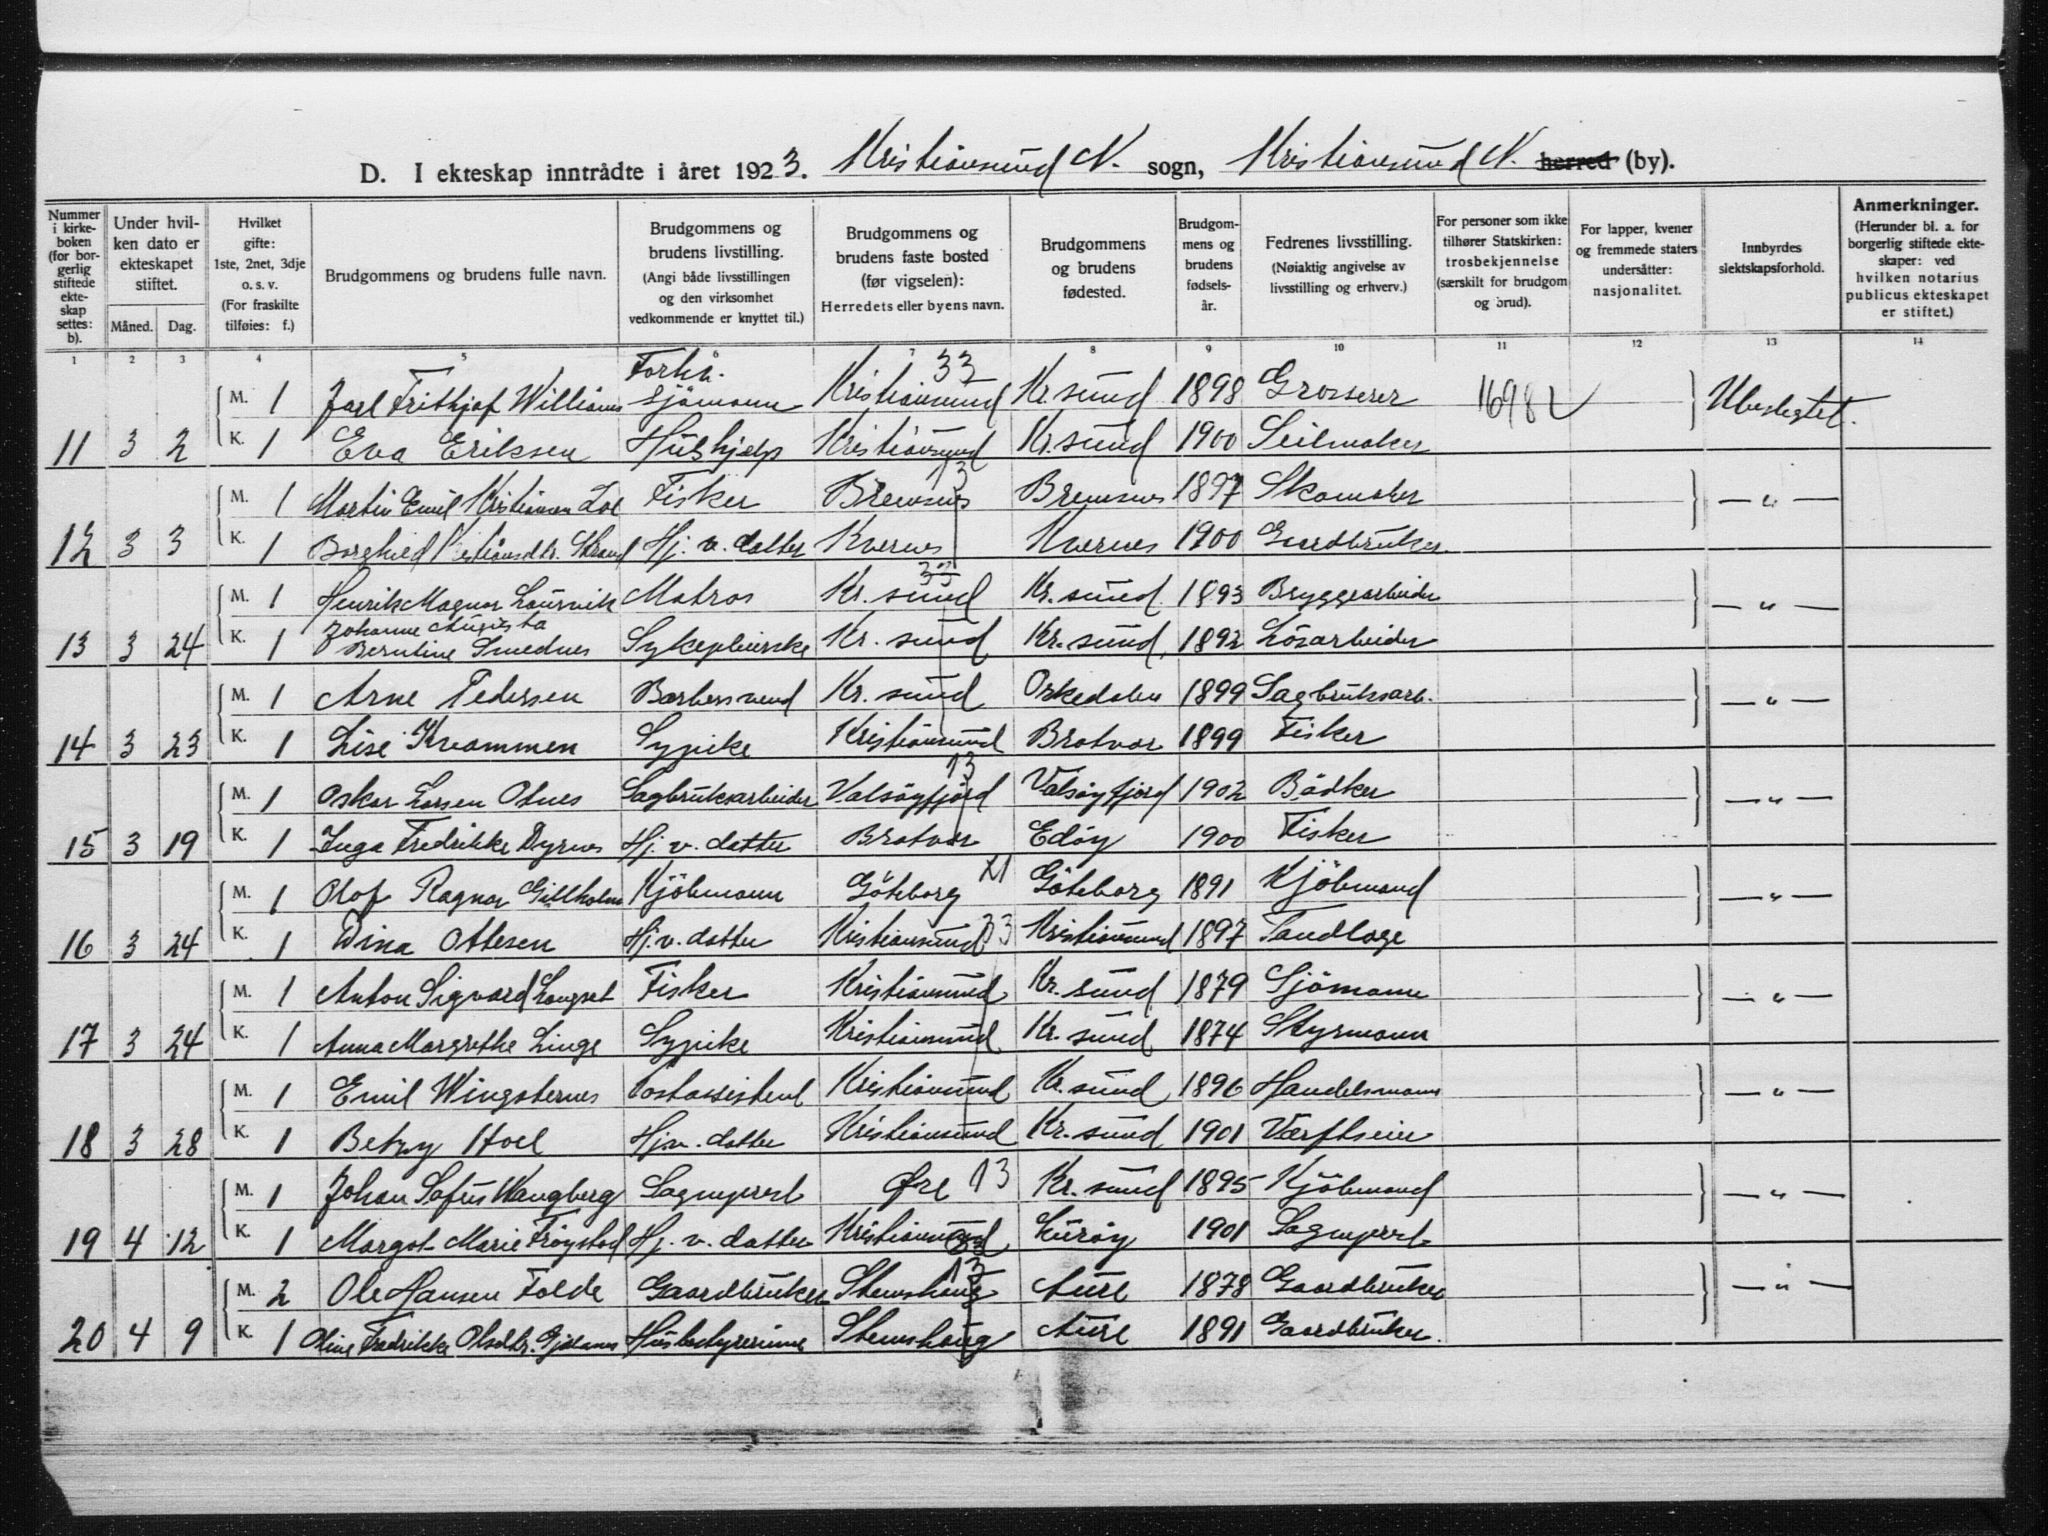 D. I ekteskap inntrådte i året 1923. Kristiansund N. sogn, Kristiansund N. herred (by).
Nummer i kirkeboken (for borgerlig stiftede ekteskap settes: b).
Under hvilken dato er ekteskapet stiftet.
Måned. Dag.
Hvilket gifte: 1ste, 2net, 3dje o. s. v. (For fraskilte tilføies: f.)
Brudgommens og brudens fulle navn.
Brudgommens og brudens livstilling. (Angi både livsstillingen og den virksomhet vedkommende er knyttet til.)
Brudgommens og brudens faste bosted (før vigselen): Herredets eller byens navn.
Brudgommens og brudens fødested.
Brudgommens og brudens fødselsår.
Fedrenes livsstilling. (Nøiaktig angivelse av livsstilling og erhverv.)
For personer som ikke tilhører Statskirken: trosbekjennelse (særskilt for brudgom og brud).
For lapper, kvener og fremmede staters undersåtter: nasjonalitet.
Innbyrdes slektskapsforhold.
Anmerkninger. (Herunder bl. a. for borgerlig stiftede ekteskaper: ved hvilken notarius publicus ekteskapet er stiftet.)
1 2 3 4 5 6 7 8 9 10 11 12 13 14
33
M. 1 Jarl Frithjof Williams Sjömann Kristiansund Kr. sund 1898 Grosserer Ubeslegtet.
11 3 2 K. 1 Eva Eriksen Hushjelp Kristiansund Kr. sund 1900 Seilmaker
13
M. 1 Martin Emil Kristiansen Fisker Bremsnes Bremsnes 1897 Skomaker — " —
12 3 3 K. 1 Borghild Kristiansdtr. Strand Hj. v. datter Kvernes Kvernes 1900 Gaardbruker.
33
M. 1 Henrik Magnor Laurvik Matros Kr. sund Kr. sund 1893 Bryggearbeider — " —
13 3 24 K. 1 Johanne Augusta Berntine Smednes Sykepleierske Kr. sund Kr. sund 1892 Lösarbeider
M. 1 Arne Pedersen Barbersvend Kr. sund Orkedalen 1899 Sagbruksarb. — " —
14 3 23 K. 1 Lise Kvammen Sypike Kristiansund Bratvær 1899 Fisker
13
M. 1 Oskar Larsen Otnes Sagbruksarbeider Valsöyfjord Valsöyfjord 1902 Bödker — " —
15 3 19 K. 1 Inga Fredrikke Dyrnes Hj. v. datter Bratvær Edöy 1900 Fisker
21
M. 1 Olof Ragnar Gillholm Kjöbmann Göteborg Göteborg 1891 Kjöbmand — " —
16 3 24 K. 1 Dina Ottesen Hj. v. datter Kristiansund 33 Kristiansund 1897 Tandlæge
M. 1 Anton Sigvard Langset Fisker Kristiansund Kr. sund 1879 Sjömann — " —
17 3 24 K. 1 Anna Margrethe Linge Sypike Kristiansund Kr. sund 1874 Styrmann
M. 1 Emil Wingsternes Postassistent Kristiansund Kr. sund 1896 Handelsmann — " —
18 3 28 K. 1 Betzy Hoel Hj. v. datter Kristiansund Kr. sund 1901 Værftseier
M. 1 Johan Sofus Wangberg Sagmester Øre 13 Kr. sund 1895 Kjöbmand — " —
19 4 12 K. 1 Margot Marie Tröystad Hj. v. datter Kristiansund 33 1901 Sagmester
13
M. 2 Ole Hansen Folde Gaardbruker Stemshaug Aure 1878 Gaardbruker — " —
20 4 9 K. 1 Oline Fredrikke Olsdtr. Husbestyrerinne Stemshaug Aure 1891 Gaardbruker.